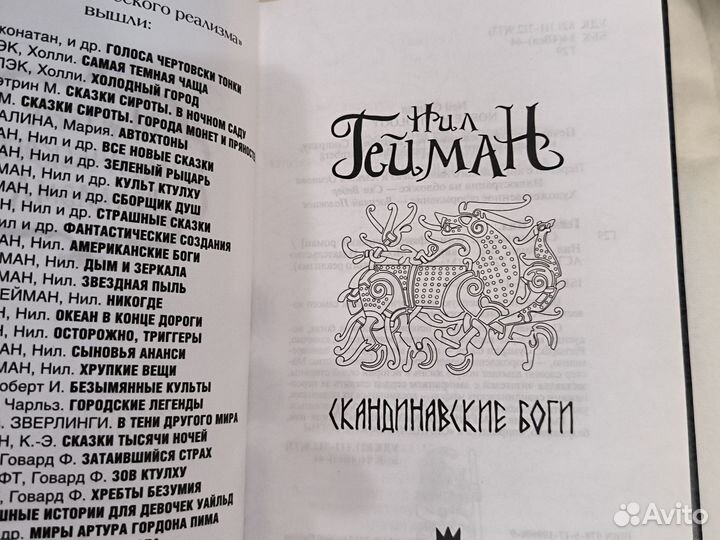 ского реализма»
вышли:
жонатан, и др. ГОЛОСА ЧЕРТОВСКИ ТОНКИ
ЭК, Холли. САМАЯ ТЕМНАЯ ЧАЩА
ЛЭК, Холли. ХОЛОДНЫЙ ГОРОД
этрин М. СКАЗКИ СИРОТЫ. В НОЧНОМ САДУ
М. СКАЗКИ СИРОТЫ. ГОРОДА МОНЕТ И ПРЯНОСТЕ
АЛИНА, Мария. АВТОХТОНЫ
АН, Нил и др. ВСЕ НОВЫЕ СКАЗКИ
АН, Нил и др. ЗЕЛЕНЫЙ РЫЦАРЬ
МАН, Нил и др. КУЛЬТ КТУЛХУ
МАН, Нил и др. СБОРЩИК ДУШ
АН, Нил и др. СТРАШНЫЕ СКАЗКИ
ил и др. ФАНТАСТИЧЕСКИЕ СОЗДАНИЯ
МАН, Нил. АМЕРИКАНСКИЕ БОГИ
МАН, Нил. ДЫМ И ЗЕРКАЛА
МАН, Нил. ЗВЕЗДНАЯ ПЫЛЬ
ЕЙМАН, Нил. НИКОГДЕ
АН, Нил. ОКЕАН В КОНЦЕ ДОРОГИ
АН, Нил. ОСТОРОЖНО, ТРИГГЕРЫ
МАН, Нил. СЫНОВЬЯ АНАНСИ
МАН, Нил. ХРУПКИЕ ВЕЩИ
оберт И. БЕЗЫМЯННЫЕ КУЛЬТЫ
Чарльз. ГОРОДСКИЕ ЛЕГЕНДЫ
а. ЗВЕРЛИНГИ. В ТЕНИ ДРУГОГО МИРА
Н, К.-Э. СКАЗКИ ТЫСЯЧИ НОЧЕЙ
Говард Ф. ЗАТАИВШИЙСЯ СТРАХ
ФТ, Говард Ф. ЗОВ КТУЛХУ
Говард Ф. ХРЕБТЫ БЕЗУМИЯ
ШНЫЕ ИСТОРИИ ДЛЯ ДЕВОЧЕК УАЙЛЬД
др. МИРЫ АРТУРА ГОРДОНА ПИМА
НИЛ
ГЕЙМАН
СКАНДИНАВСКИЕ БОГИ
Avito